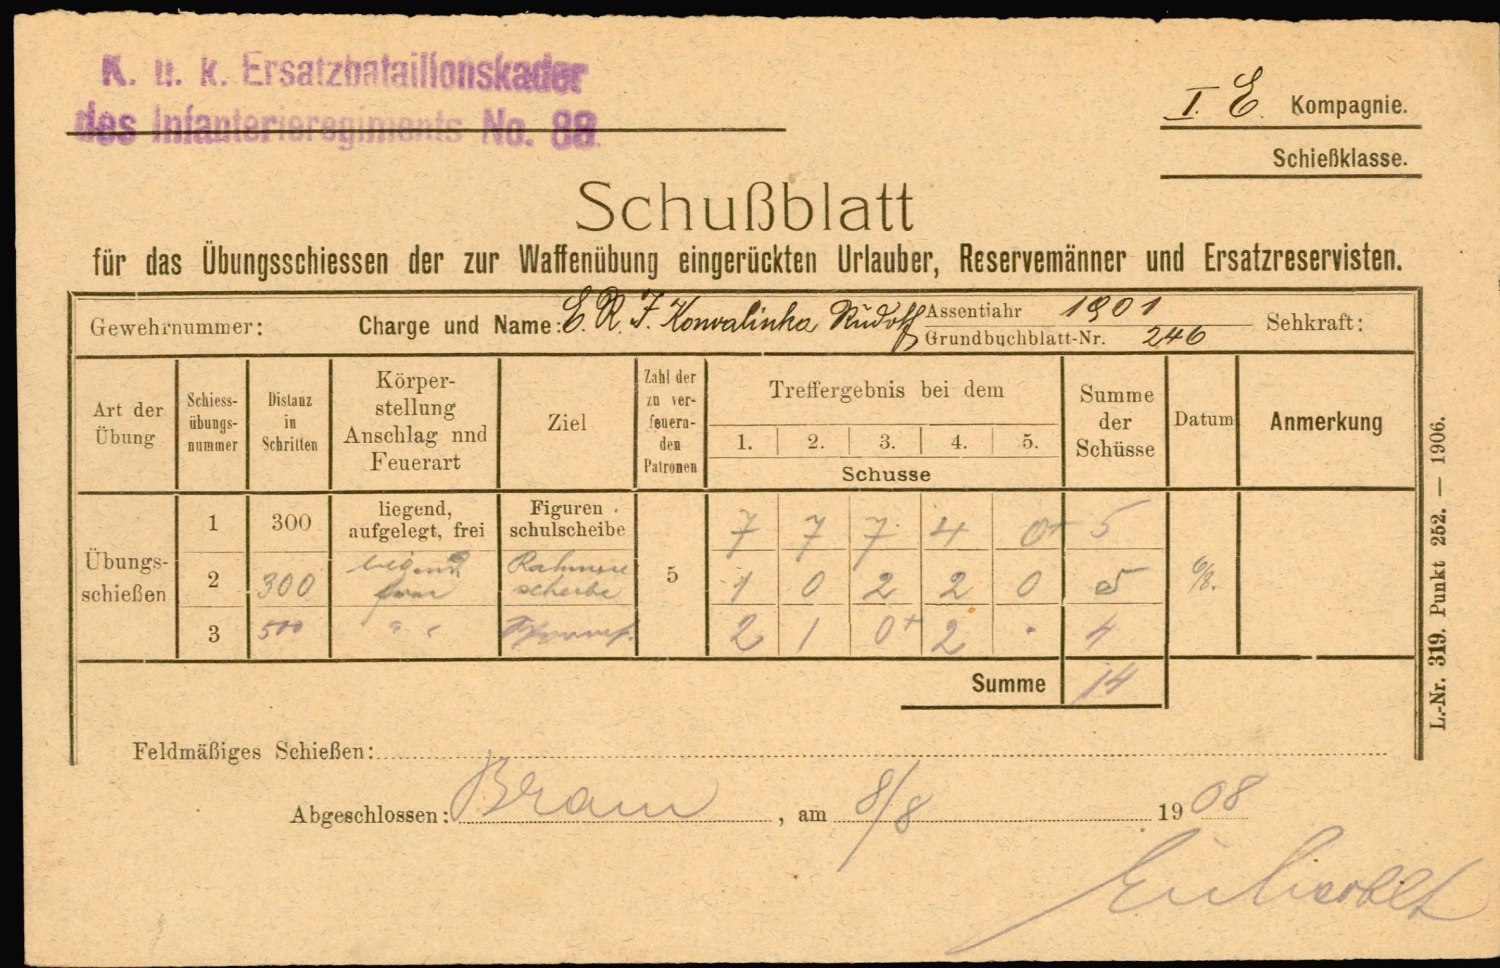 K. u. k. Ersatzbataillonskader
des Infanterieregiments No. 88.
I. E. Kompagnie.
Schießklasse.
Schußblatt
für das Übungsschiessen der zur Waffenübung eingerückten Urlauber, Reservemänner und Ersatzreservisten.
Gewehrnummer: Charge und Name: E. R. J. Konvalinka Rudolf Assentjahr 1901 Sehkraft:
Grundbuchblatt-Nr. 246
Art der Übung
Schiess-übungs-nummer
Distanz in Schritten
Körper-stellung Anschlag nnd Feuerart
Ziel
Zahl der zu ver-feuern-den Patronen
Treffergebnis bei dem
1. 2. 3. 4. 5.
Schusse
Summe der Schüsse
Datum
Anmerkung
Übungs-schießen
1 300 liegend, aufgelegt, frei Figuren schulscheibe 7 7 7 4 0+ 5
2 300 Rahmen scheibe 5 1 0 2 2 0 5 6/8.
3 500 " " 2 1 0+ 2 · 4
Summe 14
Feldmäßiges Schießen:
Abgeschlossen: , am 8/8 1908
L.-Nr. 319. Punkt 252. — 1906.